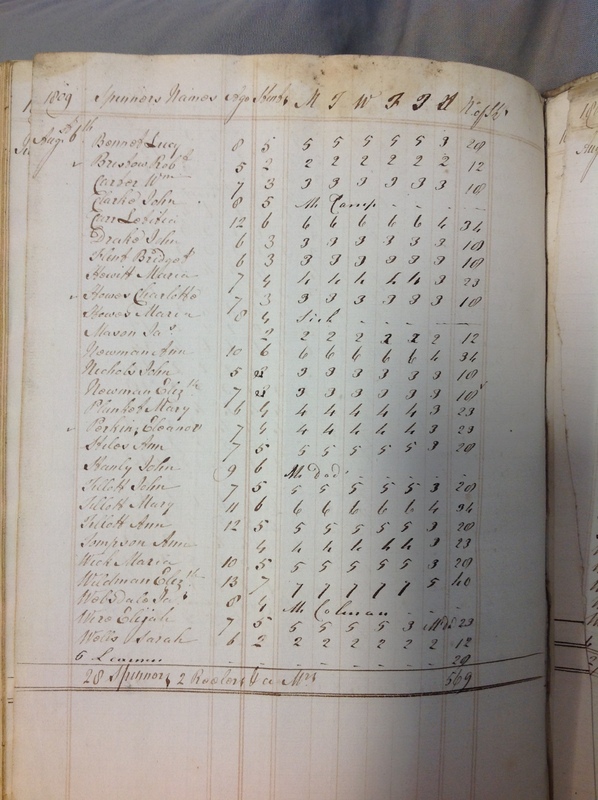 1809 Spinners Names Age Stint M T W T F S No of Sks
Augt 6th
Bennet Lucy 8 5 5 5 5 5 5 3 28
Bristow Robt 5 2 2 2 2 2 2 2 12
Carter Wm 7 3 3 3 3 3 3 3 18
Clarke John 8 5 Mr Camp - - - -
Carr Letitia 12 6 6 6 6 6 6 4 34
Drake John 6 3 3 3 3 3 3 3 18
Flint Bridget 6 3 3 3 3 3 3 3 18
Hewitt Maria 7 4 4 4 4 4 4 3 23
Howes Charlotte 7 3 3 3 3 3 3 3 18
Howes Maria 8 4 Sick - - - -
Mason Jas 2 2 2 2 2 2 2 12
Newman Ann 10 6 6 6 6 6 6 4 34
Nichols John 5 3 3 3 3 3 3 18
Newman Elizth 7 3 3 3 3 3 3 18
Plunket Mary 6 4 4 4 4 4 4 3 23
Perkins Eleanor 7 4 4 4 4 4 4 3 23
Stiles Ann 7 5 5 5 5 5 5 3 28
Stanly John 9 6 Mr - - - -
Tillott John 7 5 5 5 5 5 5 3 28
Tillott Mary 11 6 6 6 6 6 6 4 34
Tillott Ann 12 5 5 5 5 5 5 3 28
Tompson Ann 4 4 4 4 4 4 3 23
Wick Maria 10 5 5 5 5 5 5 3 28
Wildman Elizth 13 7 7 7 7 7 7 5 40
Jas 8 4 Mr Colman - - -
Elijah 7 5 5 5 5 5 3 23
Wells Sarah 6 2 2 2 2 2 2 2 12
6 - - - - - - 29
28 Spinners 2 Reelers 569